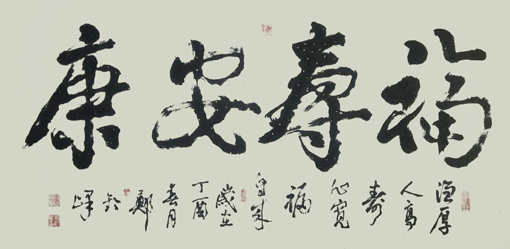 福寿安康
德厚
人高
寿
心宽
福
自来
岁在
丁酉
春月
郑
峰